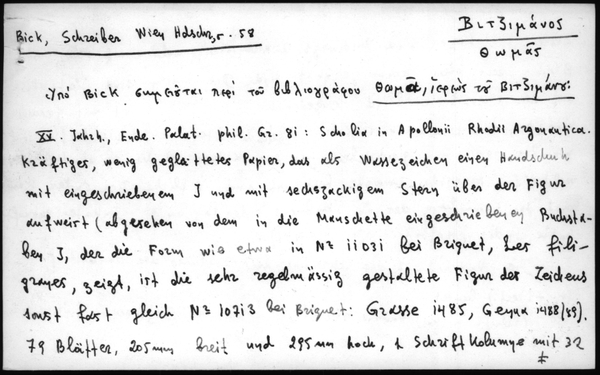 Bick, Schreiber Wien Hdschr, r. 58
Βιτζιμάνος
Θωμᾶς
Ὑπό Bick σημειοῦται περί τοῦ βιβλιογράφου Θωμᾶ, ἱερέως τοῦ Βιτζιμάνου:
XV. Jahrh., Ende. Palat. phil. Gr. 81: Scholia in Apollonii Rhodii Argonautica.
Kräftiges, wenig geglättetes Papier, das als Wassezeichen einen Handschuh
mit eingeschriebenem J und mit sechszackigem Stern über der Figur
aufweist (abgesehen von dem in die Manschette eingeschriebenen Buchsta-
ben J, der die Form wie etwa in Nr 11031 bei Briquet, Les fili-
granes, zeigt, ist die sehr regelmässig gestaltete Figur des Zeichens
sonst fast gleich Nr 10713 bei Briquet: Grasse 1485, Genua 1488(89).
79 Blätter, 205mm breit und 295mm hoch, 1 Schriftkolumne mit 32